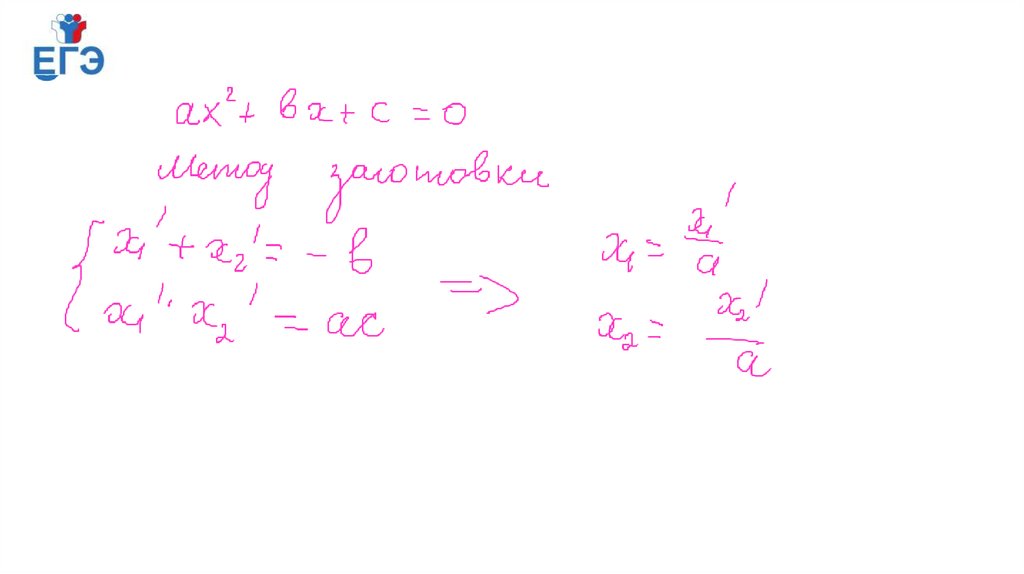 ЕГЭ
ax² + bx + c = 0
Метод заготовки
x₁' + x₂' = - b
x₁' · x₂' = ac
=>
x₁ = x₁'/a
x₂ = x₂'/a